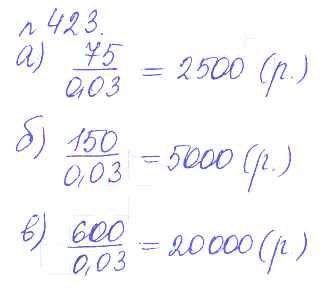 № 423.
а) 75/0,03 = 2500 (р.)
б) 150/0,03 = 5000 (р.)
в) 600/0,03 = 20000 (р)